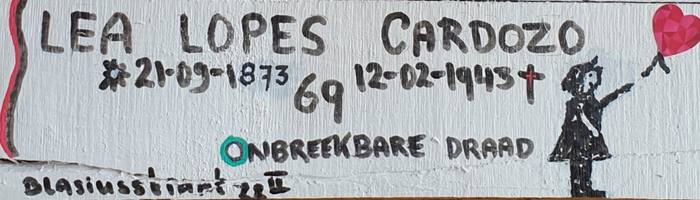 LEA LOPES CARDOZO
*21-09-1873 69 12-02-1943†
ONBREEKBARE DRAAD